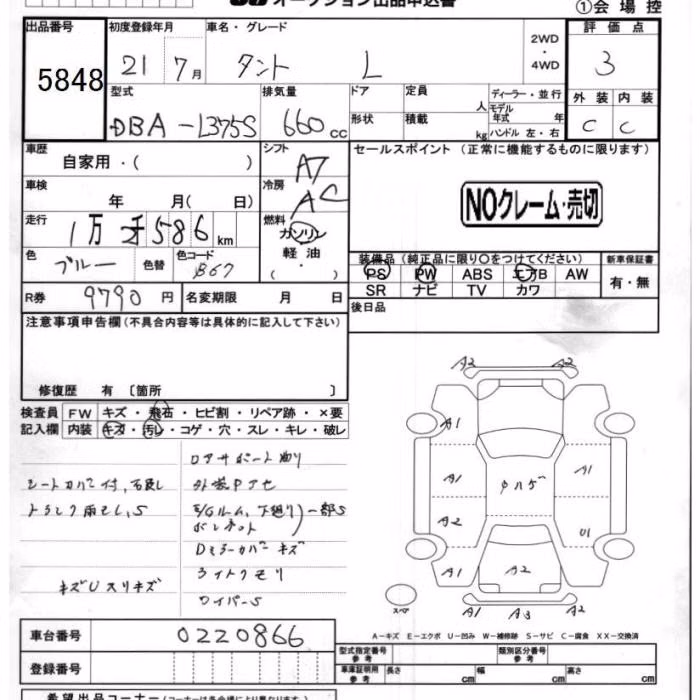 オークション出品申込書
①会場控
出品番号 初度登録年月 車名・グレード 2WD・4WD 評価点
5848 21 7月 タント L 3
型式 排気量 ドア 定員 人 ディーラー・並行 外装 内装
DBA-L375S 660cc 形状 積載 kg モデル年式 年 ハンドル 左・右 C C
車歴 自家用・( ) シフト AT セールスポイント (正常に機能するものに限ります)
車検 年 月( 日) 冷房 AC
NOクレーム・売切
走行 1万 586 km 燃料 ガソリン
色 ブルー 色替 色コード B67 軽油 ( ・ )
装備品 (純正品に限り○をつけてください) 新車保証書
PS PW ABS エアB AW 有・無
SR ナビ TV カワ
R券 9790円 名変期限 月 日 後日品
注意事項申告欄 (不具合内容等は具体的に記入して下さい)
修復歴 有 〔箇所 〕
検査員 FW キズ・飛石・ヒビ割・リペア跡・×要
記入欄 内装 キズ・汚レ・コゲ・穴・スレ・キレ・破レ
ロアサポート曲り
シートカバー付,
外装Pアセ
トランク雨モレ,S
E/Gルーム,下廻り)一部S
ボンネット)
Dミラーカバーキズ
キズUスリキズ
ライトクモリ
ワイパーS
A2 A2
A1
A1 A1
A2 U1
A1 A2 A1
A2 A3 A2
スペア
A-キズ E-エクボ U-凹み W-補修跡 S-サビ C-腐食 XX-交換済
車台番号 0220866
型式指定番号 参考 類別区分番号 参考
登録番号 車庫証明用 参考 長さ cm 幅 cm 高さ cm
希望出品コーナー